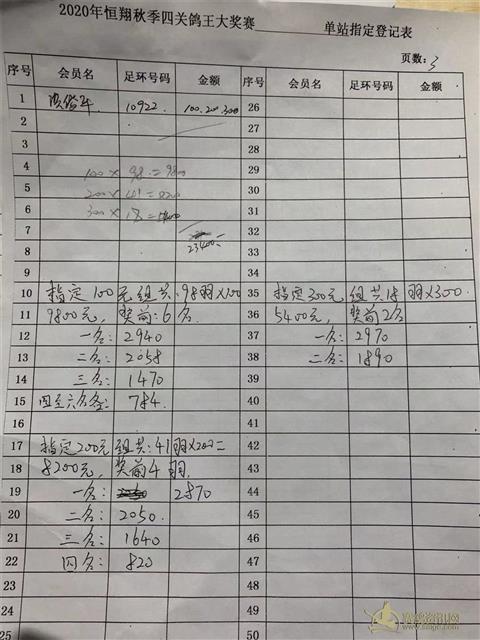 2020年恒翔秋季四关鸽王大奖赛 单站指定登记表
页数: 3
序号 会员名 足环号码 金额 序号 会员名 足环号码 金额
1 10922 100.200.300 26
2 27
3 28
4 100 × 98 = 9800 29
5 200 × 41 = 8200 30
6 300 × 18 = 31
7 32
8 23400 33
9 34
10 指定100元组共:98羽×100 35 指定300元组共18羽×300
11 9800元, 奖前:6名 36 5400元, 奖前2名
12 一名: 2940 37 一名: 2970
13 二名: 2058 38 二名: 1890
14 三名: 1470 39
15 四至六名各: 784. 40
16 41
17 指定200元组共:41羽×200= 42
18 8200元, 奖前4羽. 43
19 一名: 2870 44
20 二名: 2050. 45
21 三名: 1640 46
22 四名: 820 47
23 48
24 49
25 50
赛鸽资讯网